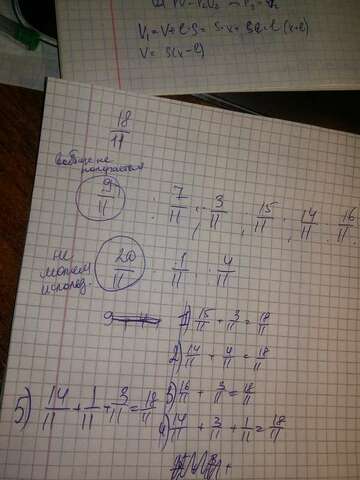 V₁ = V + l·S = S·x + S·l (x+l)
V = S(x-l)
18/11
вообще не получается
9/11 ; 7/11 ; 3/11 ; 15/11 ; 14/11 ; 16/11
не можем использ.
20/11 ; 1/11 ; 4/11
1) 15/11 + 3/11 = 18/11
2) 14/11 + 4/11 = 18/11
3) 16/11 + 3/11 = 18/11
4) 14/11 + 3/11 + 1/11 = 18/11
5) 14/11 + 1/11 + 3/11 = 18/11